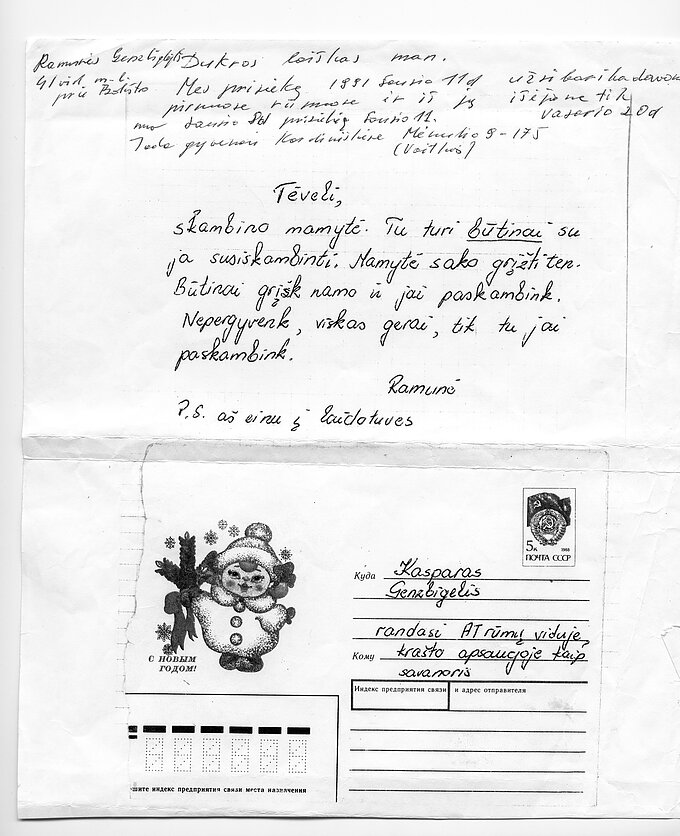 Ramunės Genzbigelytės Dukros laiškas man.
41 vid. m-la
prie
Mes prisiekę 1991 Sausio 11d užsibarikadavom
rūmuose ir iš jų išėjome tik
Vasario 20d
Sausio 8d Sausio 11.
Tada gyvenom Mėnulio 9-175
Tėveli,
skambino mamytė. Tu turi būtinai su
ja susiskambinti. Mamytė sako grįžti ten.
Būtinai grįšk namo ir jai paskambink.
Nepergyvenk, viskas gerai, tik tu jai
paskambink.
Ramunė
P.S. aš einu į laidotuves
5к
1988
ПОЧТА СССР
Куда Kasparas
Genzbigelis
randasi AT rūmų viduje,
Кому krašto apsaugoje kaip
savanoris
С НОВЫМ
ГОДОМ!
Индекс предприятия связи и адрес отправителя
шите индекс предприятия связи места назначения